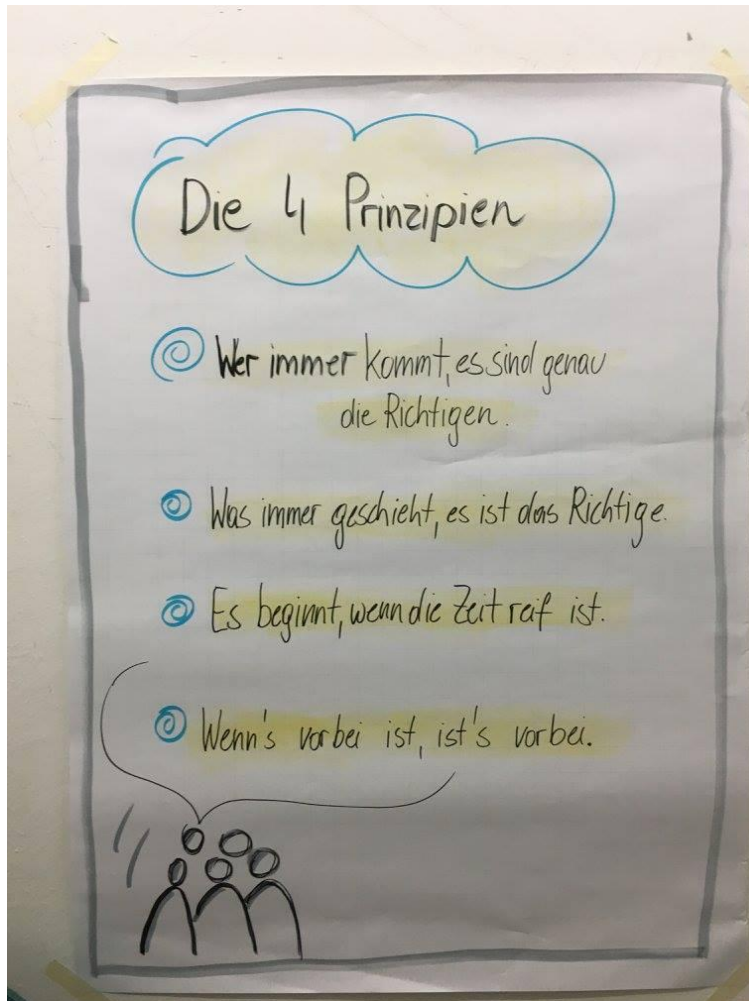 Die 4 Prinzipien
Wer immer kommt, es sind genau
die Richtigen.
Was immer geschieht, es ist das Richtige.
Es beginnt, wenn die Zeit reif ist.
Wenn's vorbei ist, ist's vorbei.